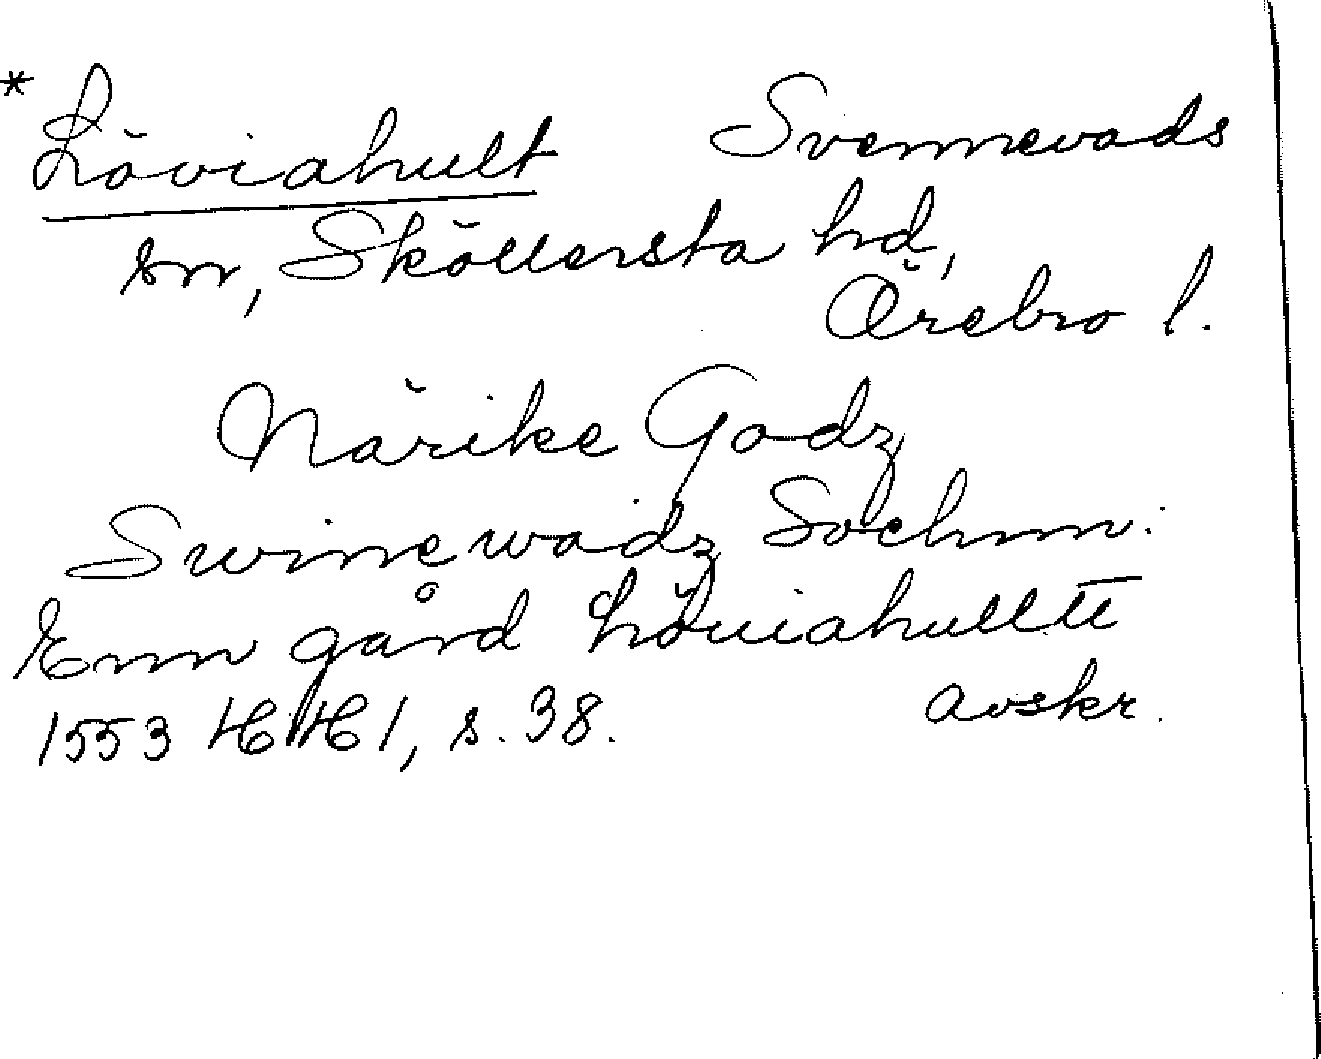 * Löviahult Svennevads
sn, Sköllersta hd,
Örebro l.
Närike Godz
Swinewadz Sochnn:
Enn gård Löuiahulltt
1553 HH 1, s. 38. avskr.